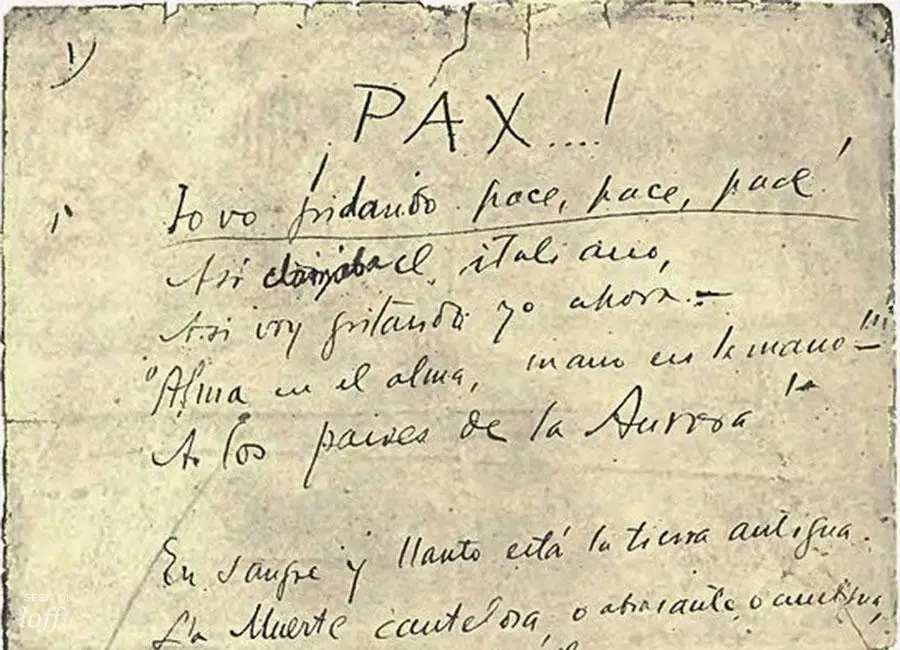 1)
PAX....!
Io vo gridando pace, pace, pace!
Asi clamaba el italiano,
Asi voy gritando yo ahora.—
"Alma en el alma, mano en la mano—"
A los paises de la Aurora
En sangre y llanto está la tierra antigua.
La Muerte cautelosa, o abrasante, o ambigua,
SEEN ON
loff.